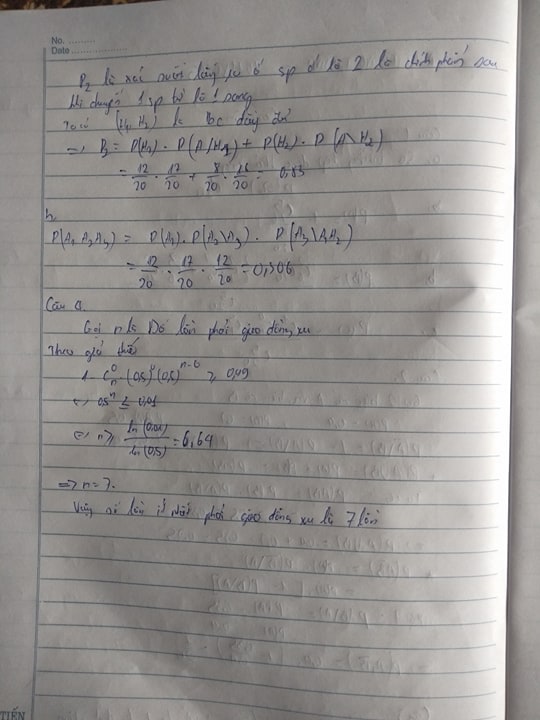 No. .........
Date ..................
P₂ là xác suất lấy ra sp ở lô 2 là chính phẩm sau
khi chuyển 1 sp từ lô 1 sang
Ta có (H₁ H₂) là đầy đủ
=> P₂ = P(H₁) . P(A/H₁) + P(H₂) . P(A\H₂)
= 12/20 . 17/20 + 8/20 . 16/20 = 0,83
b,
P(A₁ A₂ A₃) = P(A₁) . P(A₂\A₁) . P(A₃\A₁A₂)
= 12/20 . 17/20 . 12/20 = 0,306
Câu
Gọi n là số lần phải gieo đồng xu
Theo giả thiết
1 - C⁰ₙ (0,5)⁰ (0,5)ⁿ⁻⁰ ≥ 0,99
<=> 0,5ⁿ ≤ 0,01
<=> n ≥ ln(0,01)/ln(0,5) = 6,64
=> n = 7.
Vậy số lần ít nhất phải gieo đồng xu là 7 lần
TIẾN